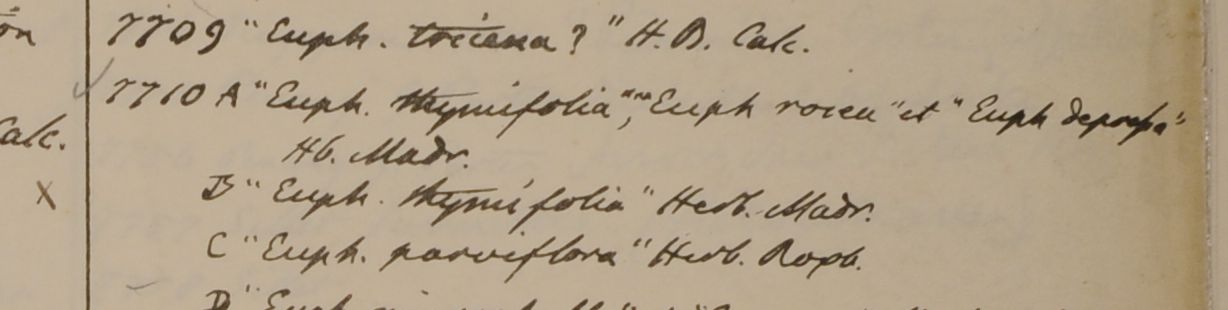 ön
7709 "Euph. tricina?" H. B. Calc.
7710 A "Euph. thymifolia", "Euph rosea" et "Euph depressa"
Calc.
Hb. Madr.
X
B "Euph. thymifolia" Herb. Madr.
C "Euph. parviflora" Herb. Roxb.
D "Euph.